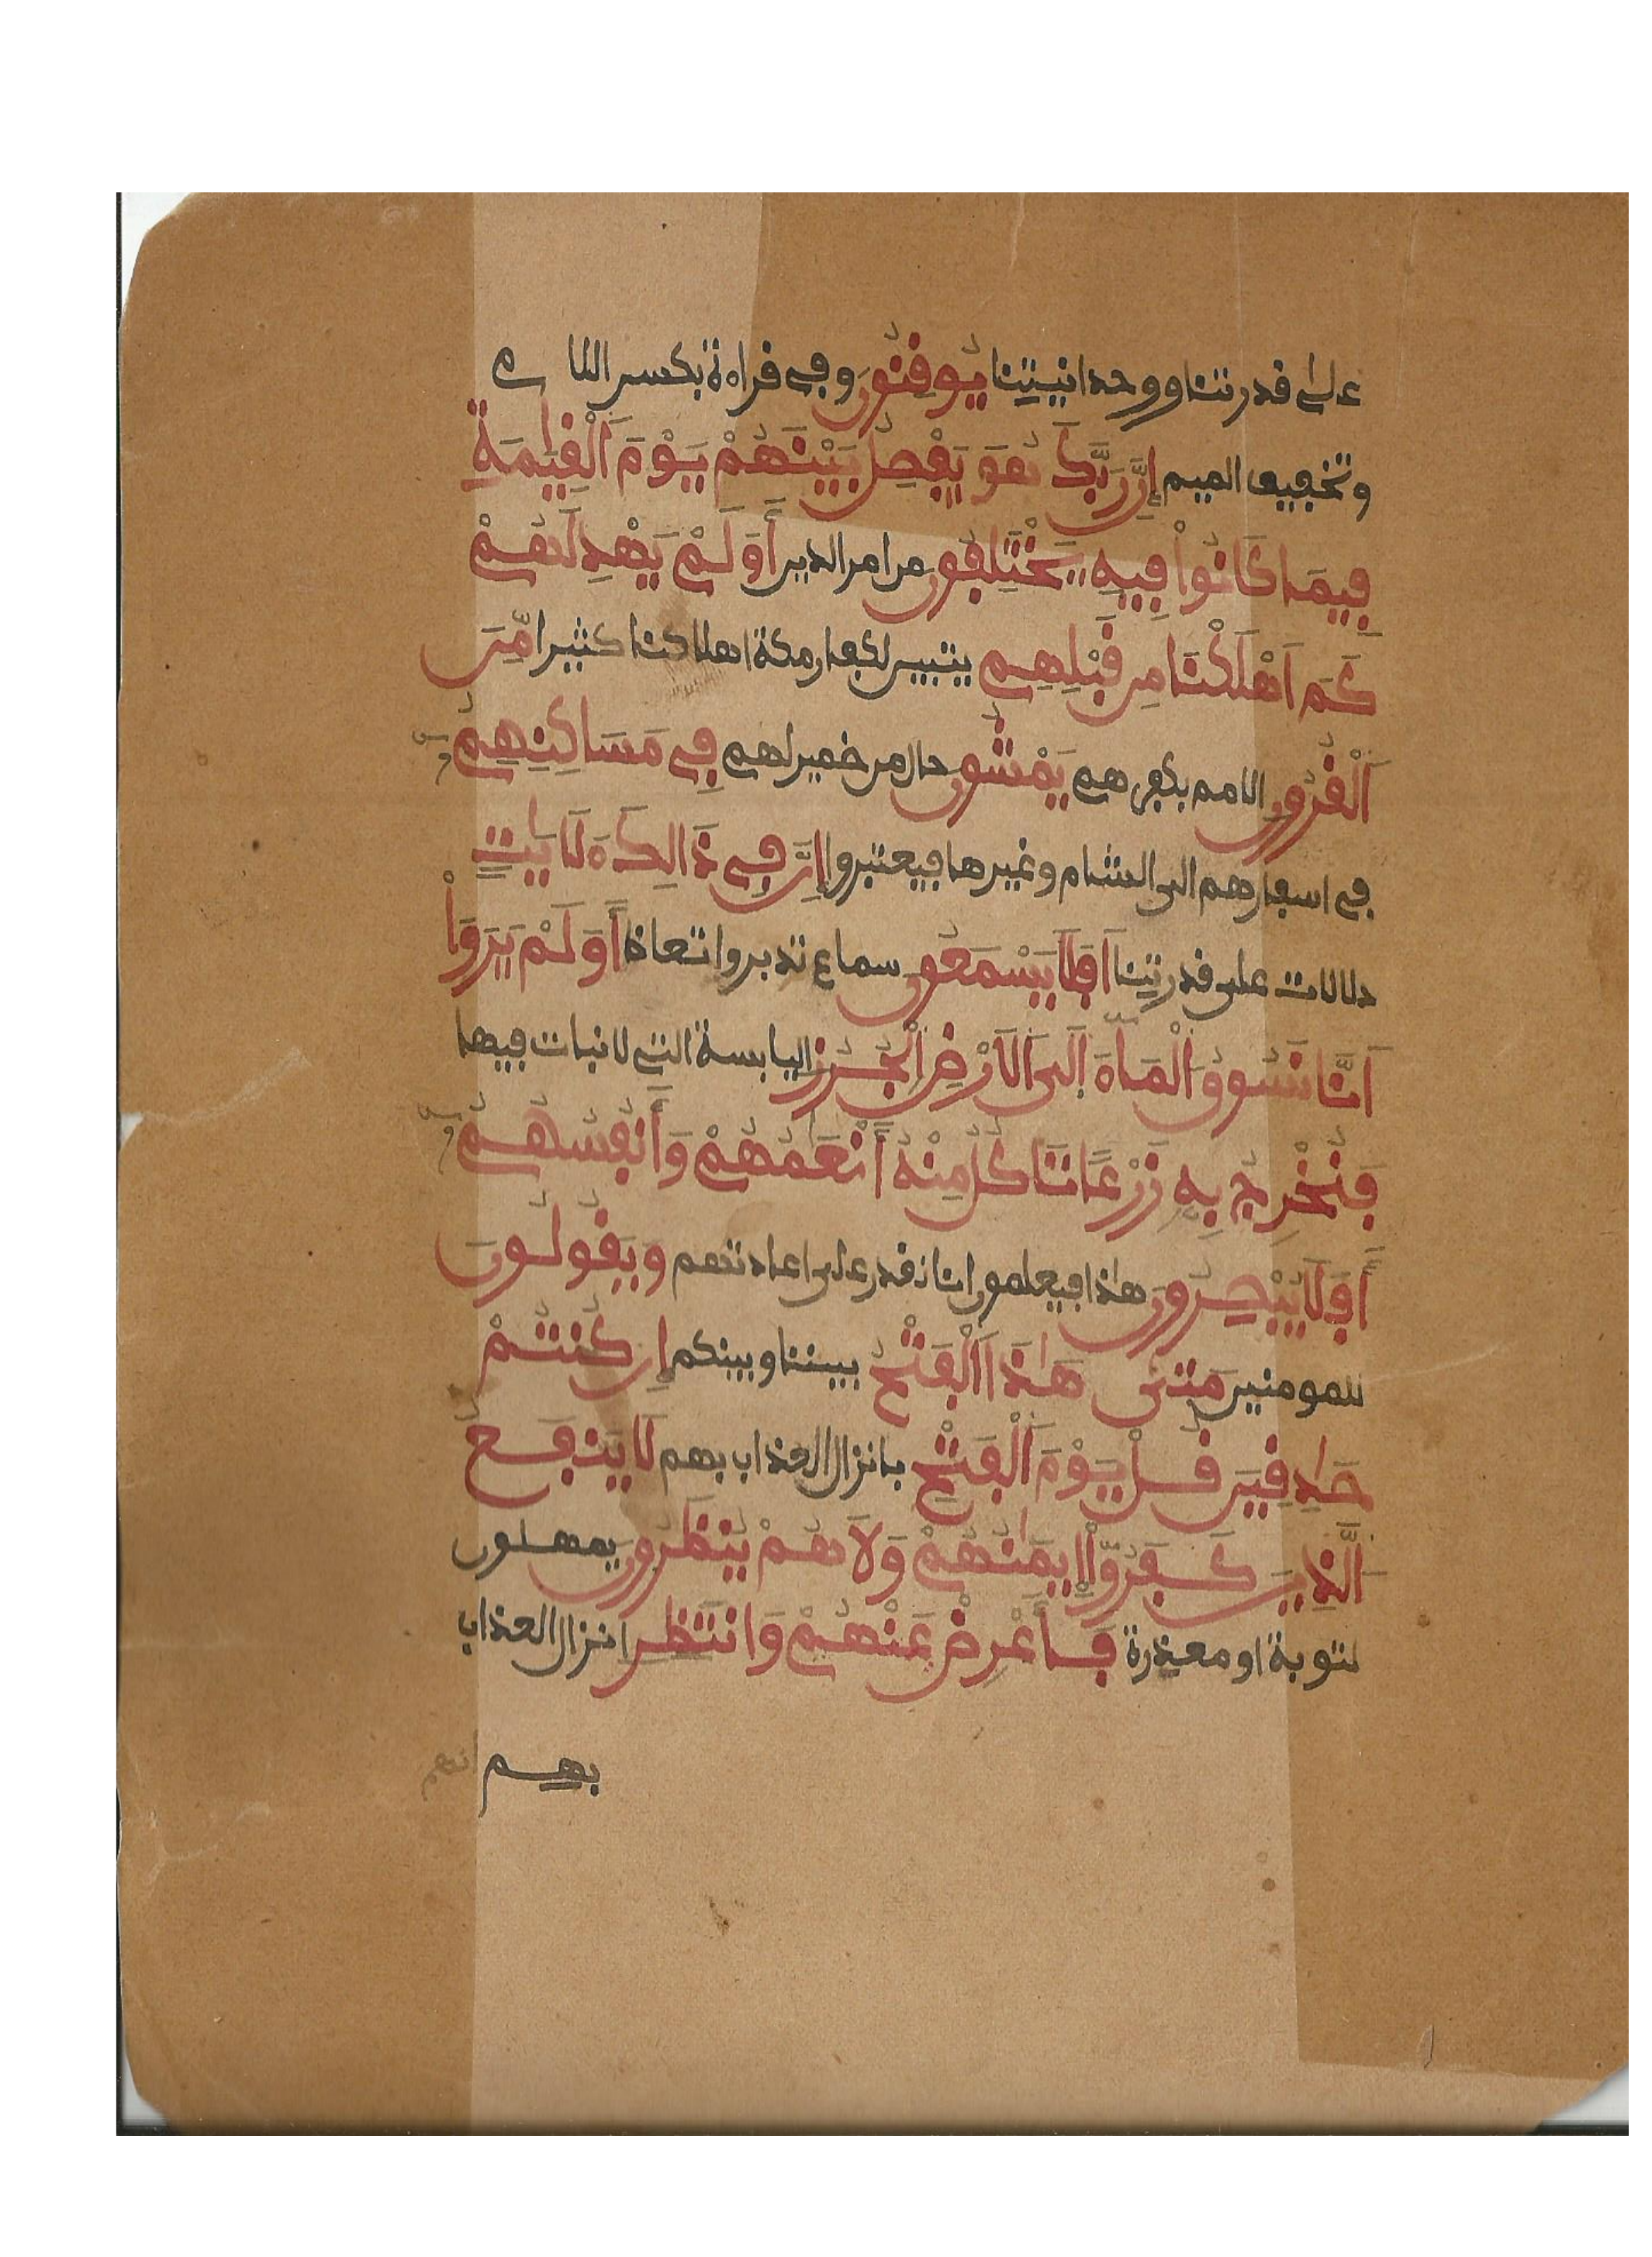 على قدرتنا ووحدانيتنا يُوقِنُونَ وفي قراءة بكسر اللام
وتخفيف الميم إِنَّ رَبَّكَ هُوَ يَفْصِلُ بَيْنَهُمْ يَوْمَ اَلْقِيَٰمَةِ
فِيمَا كَانُواْ فِيهِ يَخْتَلِفُونَ من امر الدين أَوَلَمْ يَهْدِ لَهُمْ
كَمَ اَهْلَكْنَا مِن قَبْلِهِم يتبين لكفار مكة اهلاكنا كثيرا مِّنَ
اَلْقُرُونِ الامم بكفرهم يَمْشُونَ حال من ضمير لهم فِي مَسَاكِنِهِمُ
في اسفارهم الى الشام وغيرها فيعتبروا إِنَّ فِي ذَالِكَ ءَلَايَٰتٍ
دلالات على قدرتنا اَفَلَا يَسْمَعُونَ سماع تدبر واتعاظ أَوَلَمْ يَرَوَاْ
اَنَّا نَسُوقُ اُلْمَاءَ اِلَى اَلَارْضِ اِلْجُرُزِ اليابسة التي لا نبات فيها
فَنُخْرِجُ بِهِ زَرْعًا تَاكُلُ مِنْهُ أَنْعَٰمُهُمْ وَأَنفُسُهُمُ
أَفَلَا يُبْصِرُونَ هذا فيعلمون انا نقدر على اعادتهم وَيَقُولُونَ
للمومنين مَتَىٰ هَٰذَا اَلْفَتْحُ بيننا وبينكم إِن كُنتُمْ
صَٰدِقِينَ قُلْ يَوْمَ اَلْفَتْحِ بانزال العذاب بهم لَا يَنفَعُ
اُلَّذِينَ كَفَرُواْ إِيمَٰنُهُمْ وَلَا هُمْ يُنظَرُونَ يمهلون
لتوبة او معذرة فَأَعْرِضْ عَنْهُمْ وَانتَظِر انزال العذاب
بهم انهم